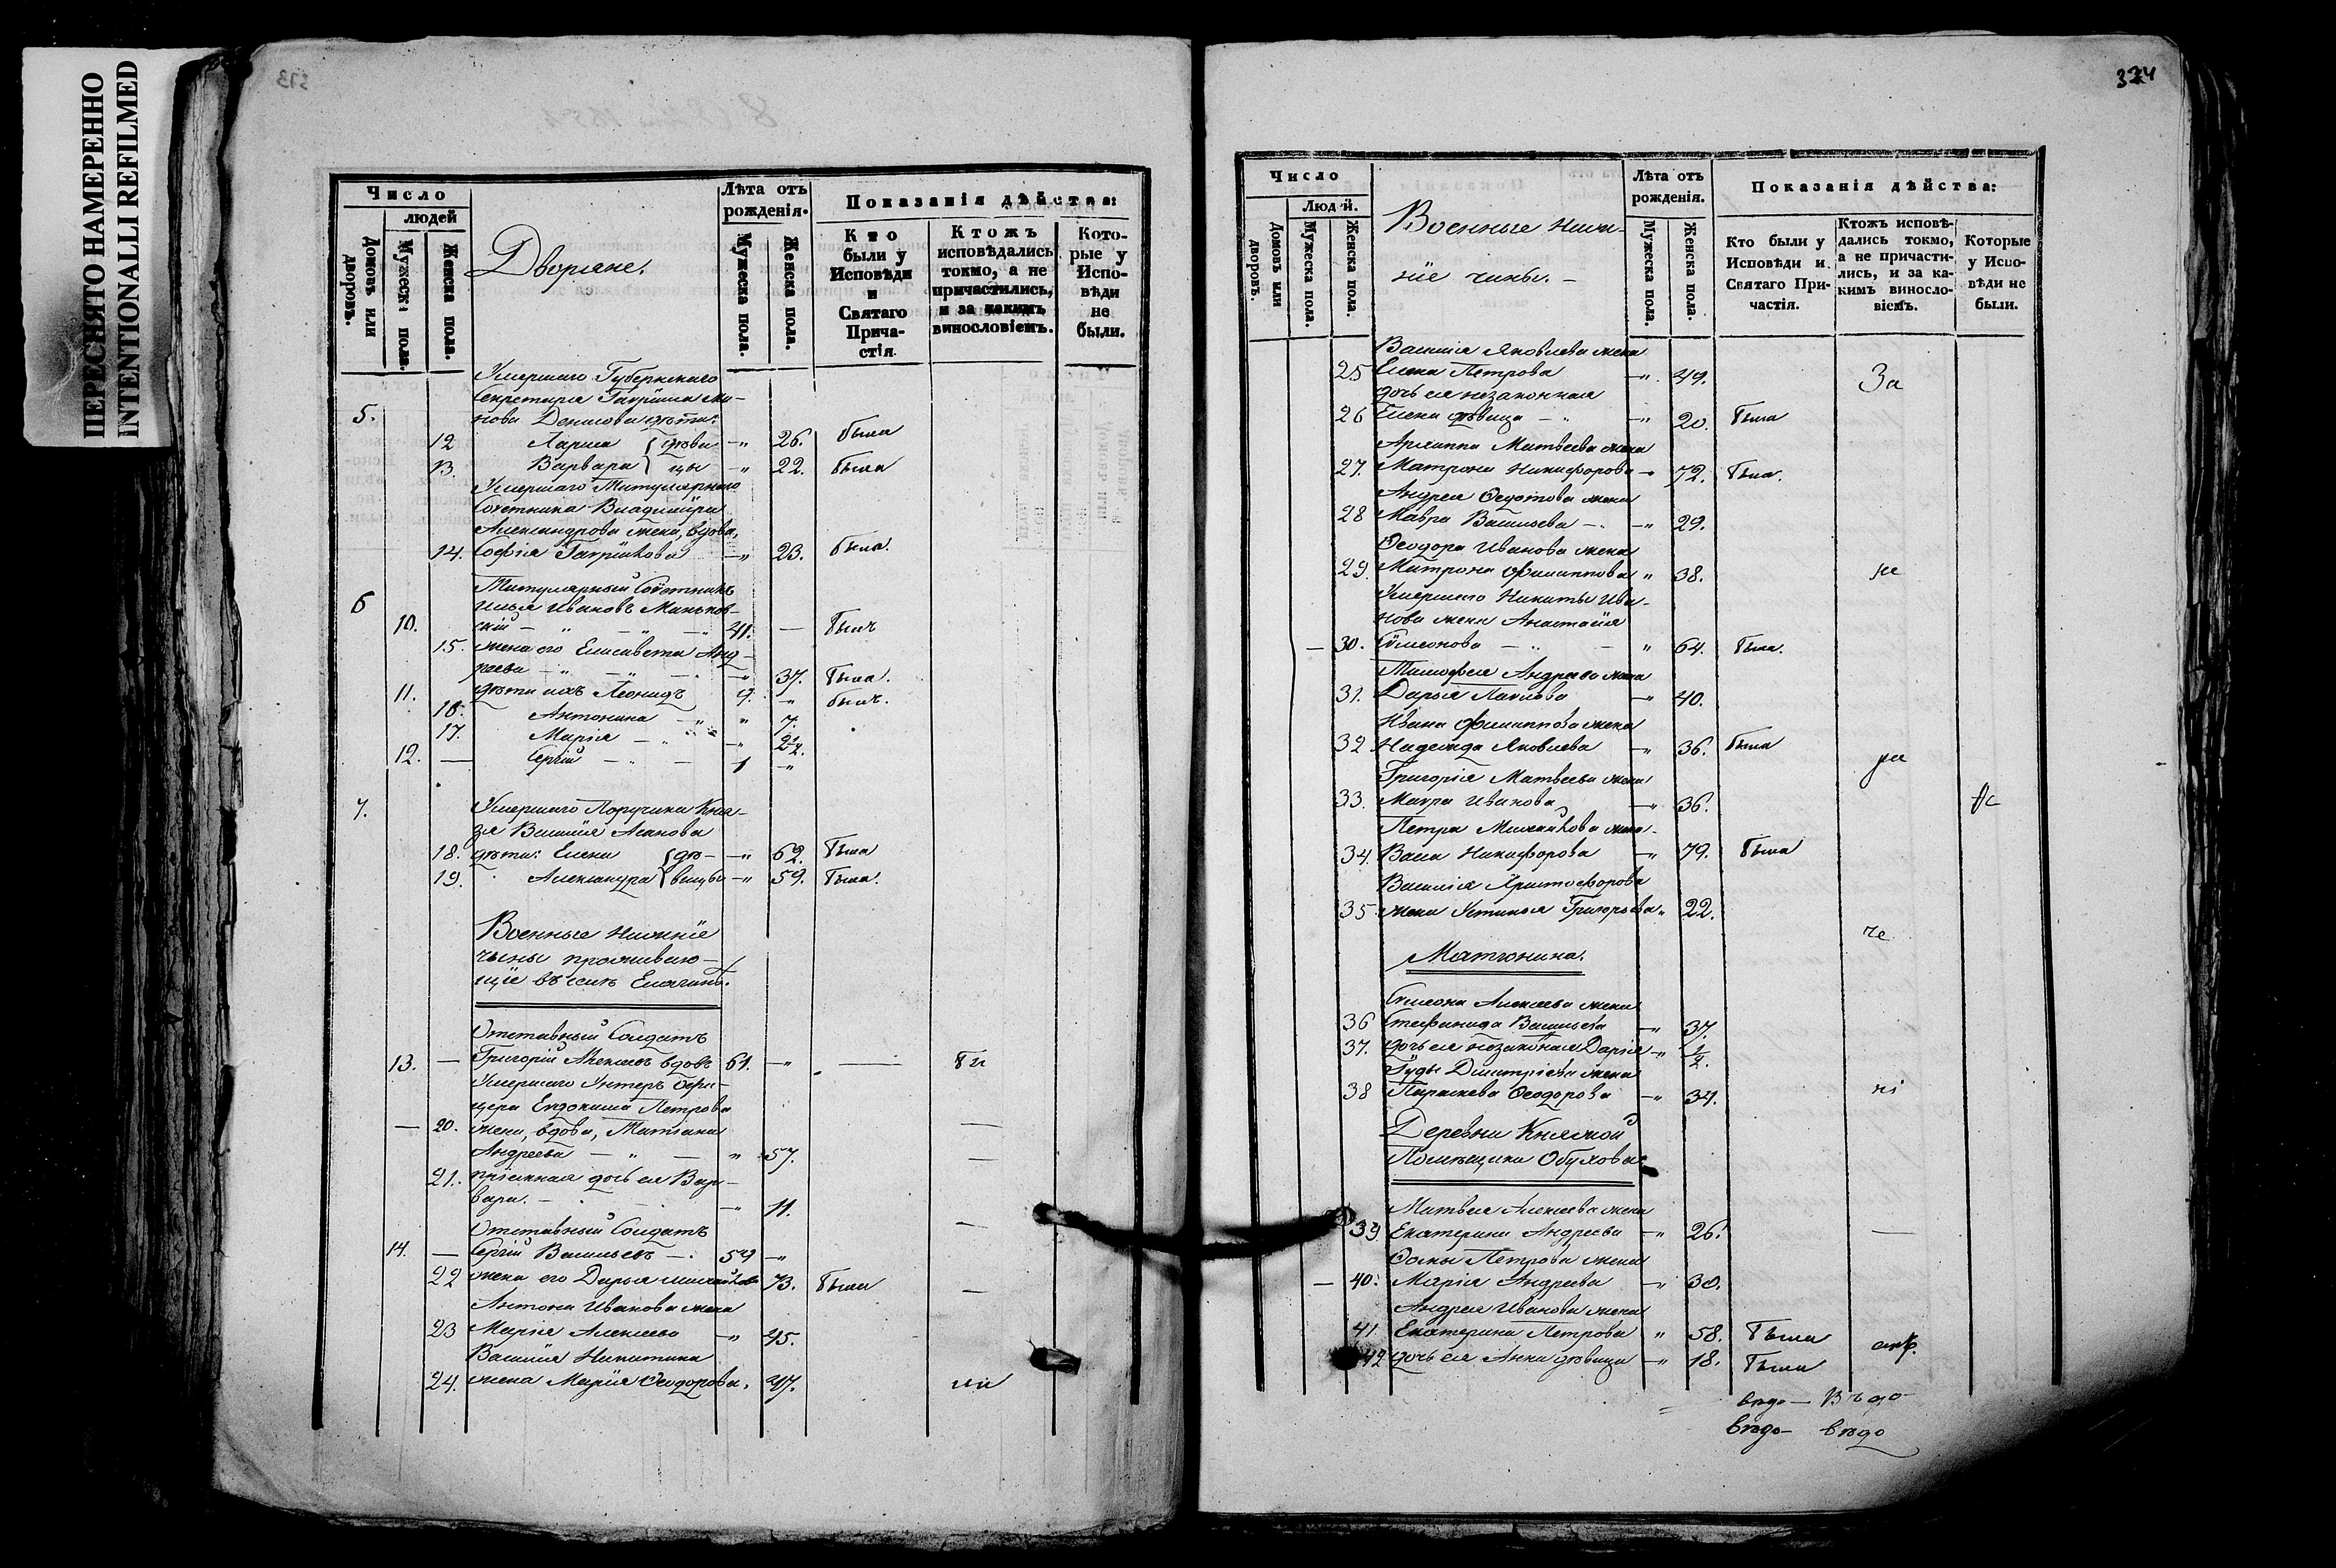 ПЕРЕСНЯТО НАМЕРЕННО
INTENTIONALLI REFILMED
373
Число
людей
Домовъ или дворовъ.
Мужеска пола.
Женска пола.
Дворяне.
Лѣта отъ рожденія.
Мужеска пола.
Женска пола.
Показанія дѣйства:
Кто были у Исповѣди и Святаго Прича-стія.
Ктожъ исповѣдались токмо, а не причастились, и за какимъ винословіемъ.
Кото-рые у Испо-вѣди не были.
Умершаго Губернскаго
Секретаря Гавріила
5. Денисова дѣти:
12 Лариса дѣви 26. была
13. Варвара цы 22. была
Умершаго Титулярнаго
Совѣтника Владиміра
Александрова жена, вдова,
14. Софія Гавріилова 23. была.
Титулярный Совѣтникъ
6 Илья Ивановъ
10. скій 41. былъ
15. жена его Елисавета Анд-
реева 37. была.
11. дѣти ихъ Леонидъ 9. былъ.
16. Антонина 7.
17. Марія 2½.
12. Сергій 1
7. Умершаго Поручика Кня-
зя Василія Асанова
18. дѣти: Елена дѣ- 62. была
19. Александра вицы 59. была.
Военные нижніе
чины проживаю-
щіе въ селѣ
Отставный Солдатъ
13. Григорій Алексѣевъ вдовъ 61.
Умершаго Унтеръ Офи-
цера Евдокима Петрова
20. жена, вдова, Татіана
Андреева 57.
21. пріемная дочь ея Вар-
вара. 11.
Отставный Солдатъ
14. Сергій Васильевъ 59
22 жена его Дарья Михайлова 73. была
Антона Иванова жена
23 Марія Алексѣева 45.
Василія Никитина
24. жена Марія Ѳеодорова. 47.
374
Число
Людей.
Домовъ или дворовъ.
Мужеска пола.
Женска пола.
Военные ниж-
ніе чины.
Лѣта отъ рожденія.
Мужеска пола.
Женска пола.
Показанія дѣйства:
Кто были у Исповѣди и Святаго При-частія.
Ктожъ исповѣ-дались токмо, а не причасти-лись, и за ка-кимъ винослo-віемъ.
Которые у Испо-вѣди не были.
Василія Яковлева жена
25 Елена Петрова 49. За
дочь ея незаконная
26 Елена дѣвица 20. была
Архиппа Матвѣева жена
27. Матрона Никифорова 72. была.
Андрея Ѳедотова жена
28 Мавра Васильева 29.
Ѳеодора Иванова жена
29. Матрона Филиппова 38.
Умершаго Никиты Ива-
нова жена Анастасія
30. Симеонова 64. была.
Тимофея Андреева жена
31. Дарья Павлова 40.
Ивана Филиппова жена
32 Надежда Яковлева 36. была
Григорія Матвѣева жена
33. Мавра Иванова 36.
Петра Михайлова жена
34. Васса Никифорова 79. была
Василія Христофорова
35 жена Устинья Григорьева 22.
Матюнина.
Симеона Алексѣева жена
36 Стефанида Васильева 37.
37. дочь ея незаконная Дарія ½.
Іуды Димитріева жена
38 Параскева Ѳеодорова 34.
Деревни Княжой
Помѣщика Обухова
Матвѣя Алексѣева жена
39 Екатерина Андреева 26.
Ѳомы Петрова жена
40. Марія Андреева 30.
Андрея Иванова жена
41 Екатерина Петрова 58. была
42 дочь ея Анна дѣвица 18. была